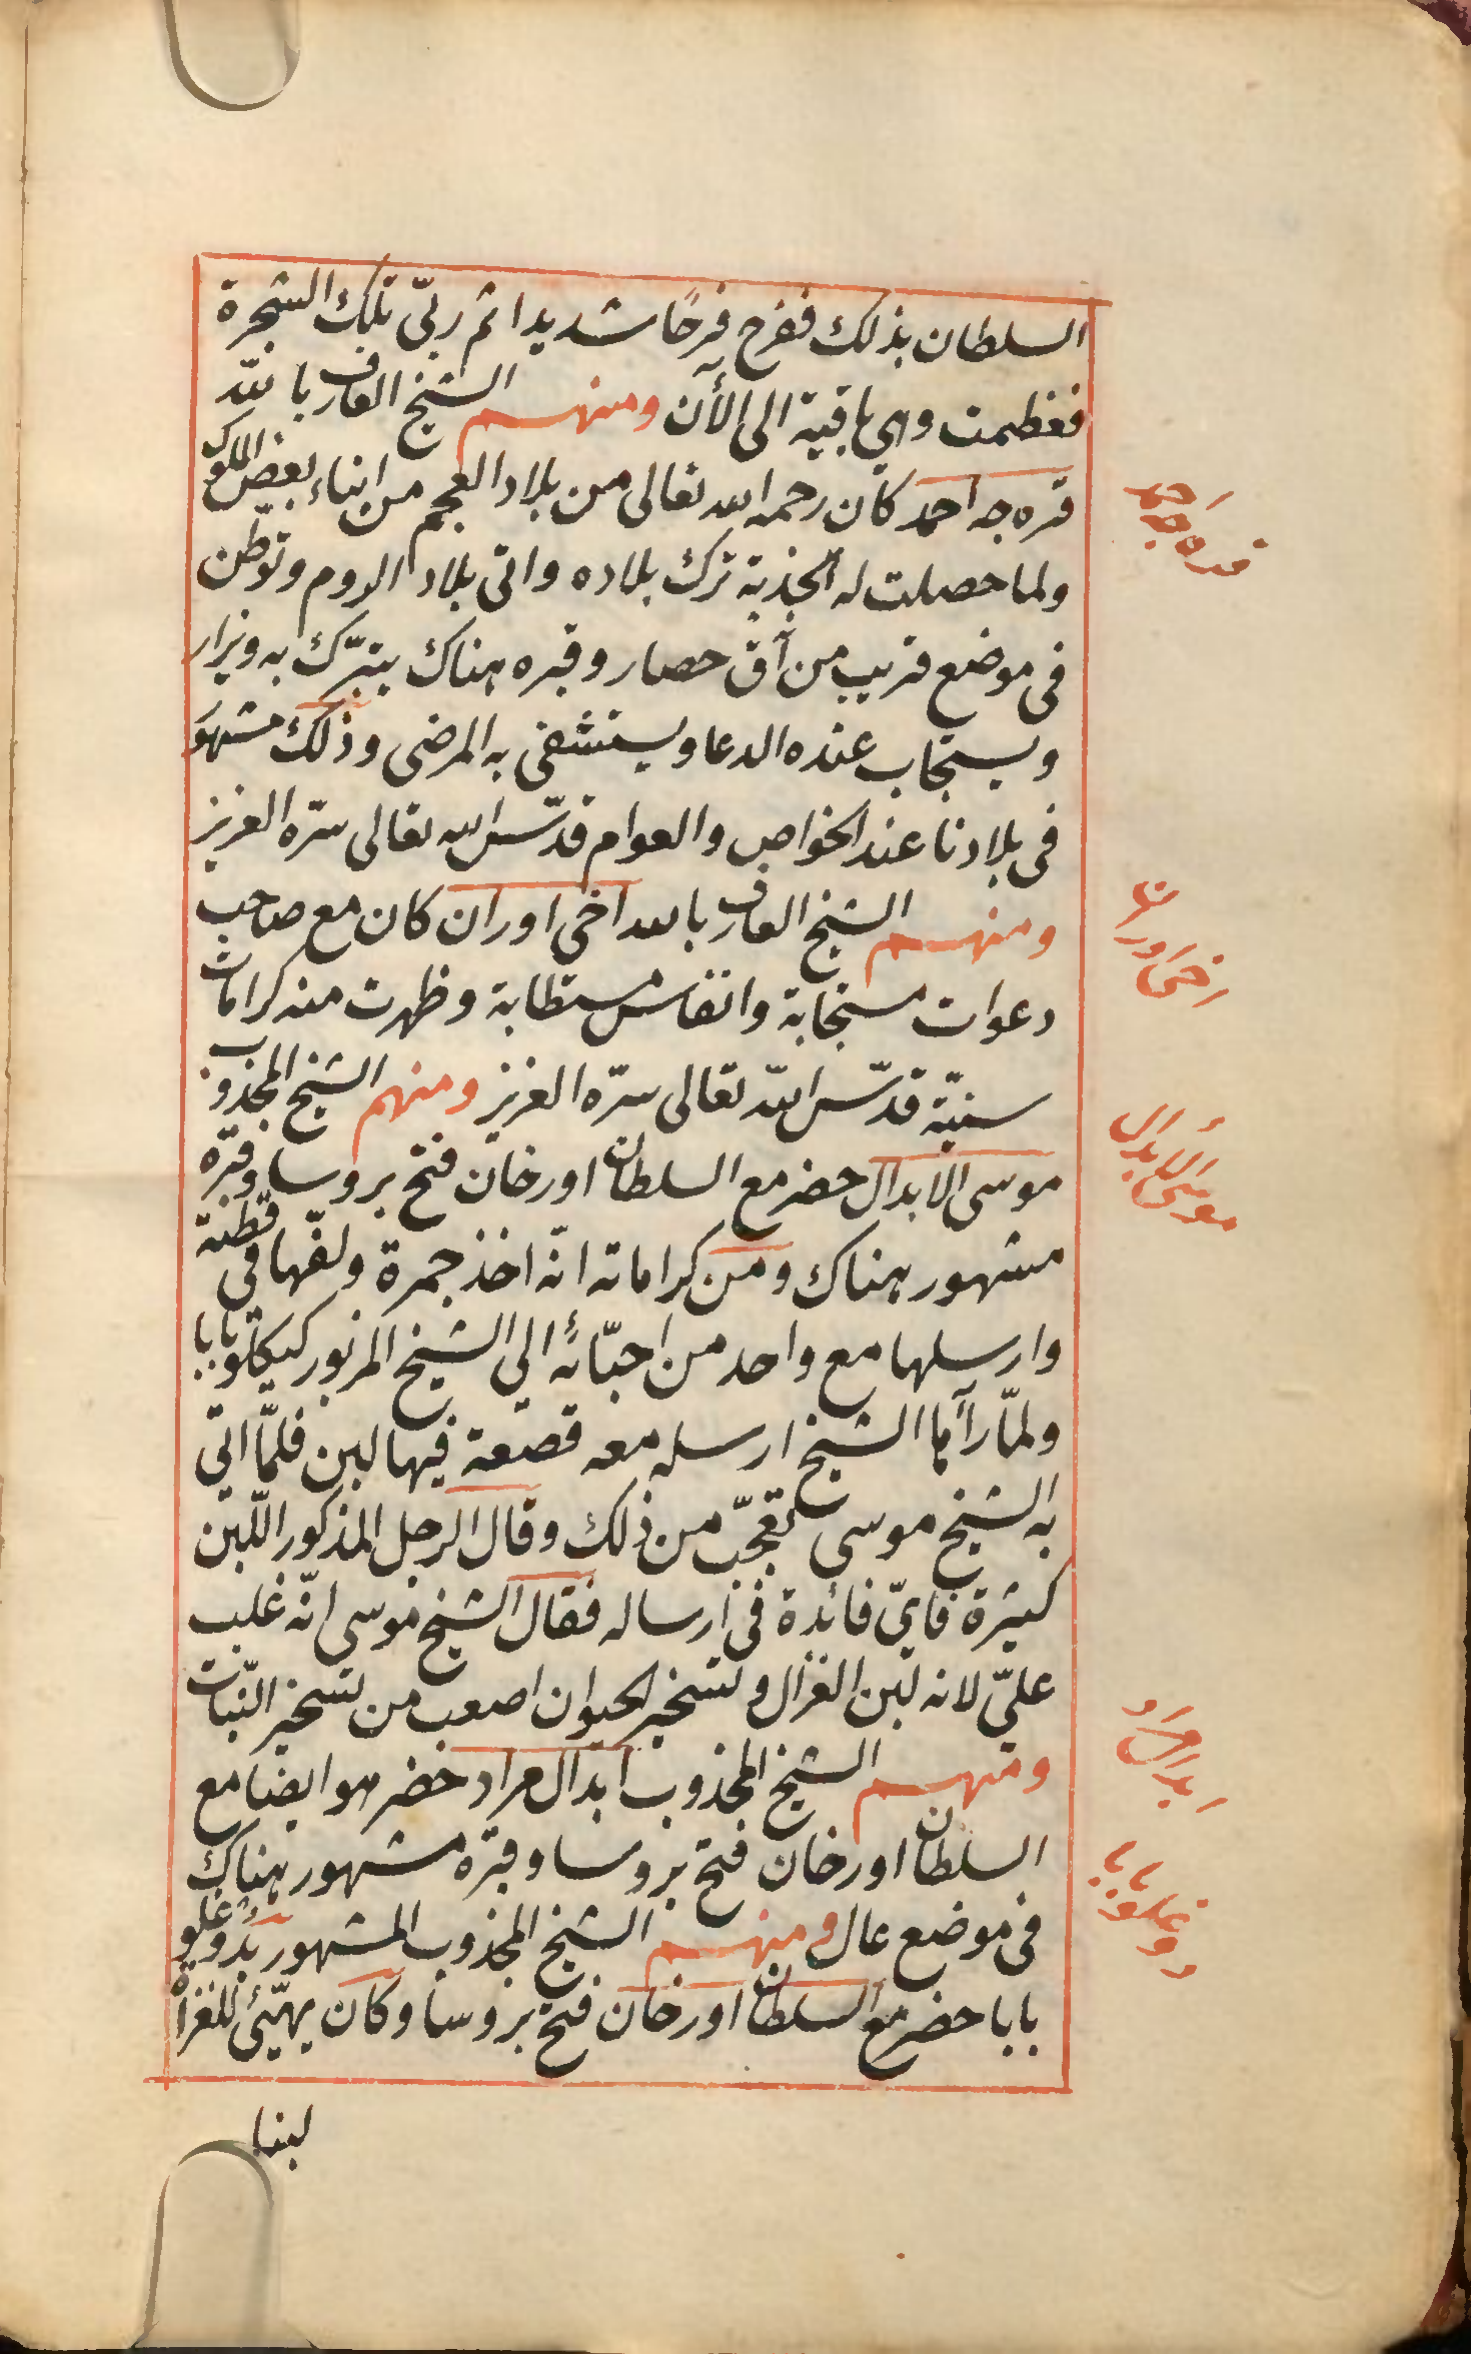 السلطان بذلك ففرح فرحًا شديدا ثم ربّى تلك الشجرة
فعظمت وهي باقية الى الأن ومنهم الشيخ العارف بالله
قره جه احمد كان رحمه الله تعالى من بلاد العجم من ابناء بعض الملوك
ولما حصلت له الجذبة ترك بلاده واتى بلاد الروم وتوطّن
فى موضع قريب من آق حصار وقبره هناك يتبرّك به ويزار
ويستجاب عنده الدعا ويستشفى به المرضى وذلك مشهور
فى بلادنا عند الخواص والعوام قدّس الله تعالى سرّه العزيز
ومنهم الشيخ العارف بالله اخى اوران كان مع صاحب
دعوات مستجابة وانفاس مستطابة وظهرت منه كرامات
سنيّة قدّس الله تعالى سرّه العزيز ومنهم الشيخ المجذوب
موسى الابدال حضر مع السلطان اورخان فتح بروسا وقبره
مشهور هناك ومن كراماته انّه اخذ جمرة ولفّها فى قطنة
وارسلها مع واحد من احبّائه الى الشيخ المزبور كيكلو بابا
ولمّا رآها الشيخ ارسله معه قصعة فيها لبن فلمّا اتى
به الشيخ موسى تعجّب من ذلك وقال الرجل المذكور اللّبن
كثيرة فايّ فائدة فى ارساله فقال الشيخ موسى انّه غلب
عليّ لانه لبن الغزال وتسخير الحيوان اصعب من تسخير النّبات
ومنهم الشيخ المجذوب ابدال مراد حضر هو ايضا مع
السلطان اورخان فتح بروسا وقبره مشهور هناك
فى موضع عال ومنهم الشيخ المجذوب المشهور بدوغلو
بابا حضر مع السلطان اورخان فتح بروسا وكان يهيّئ للغزاة
لبنا
قره جه احمد
اخى اوران
موسى الابدال
ابدال مراد
دوغلو بابا